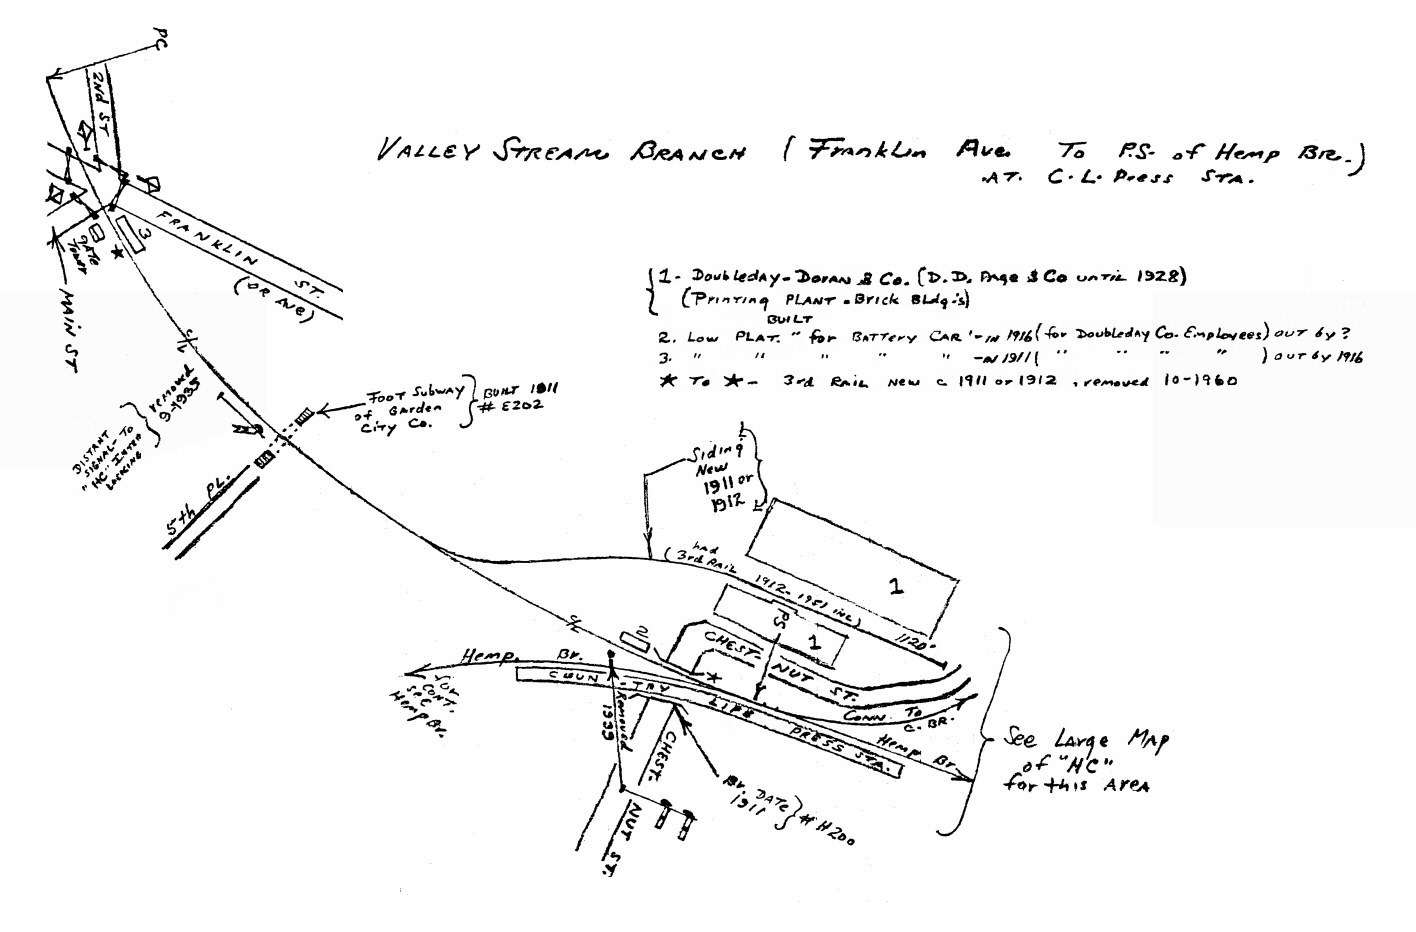 PC
2nd ST
VALLEY STREAM BRANCH (Franklin Ave. To P.S. of Hemp BR.)
AT. C.L. Press STA.
3
GATE
Tower
FRANKLIN ST.
(OR AVE)
MAIN ST
1- Doubleday-Doran & Co. (D.D. Page & Co until 1928)
(Printing PLANT - Brick Bldg's)
BUILT
2. Low PLAT. " for BATTery CAR '-IN 1916 (for Doubleday Co. Employees) OUT by ?
3. " " " " " -IN 1911 ( " " " " ) OUT by 1916
★ To ★ - 3rd RAIL New c 1911 or 1912 , removed 10-1960
C/L
removed
9-1935
DISTANT
SIGNAL- TO
"HC" INTER
LOCKING
FOOT SUBWAY
of Garden
City Co.
BUILT 1911
# E202
5th PL.
Siding
New
1911 or
1912
(had
3rd RAIL 1912-1951 inc)
1120'
1
PS
1
CHEST-NUT ST.
C/L
2
Hemp. Br.
for
CONT.
SEE
Hemp Br.
COUN-TRY LIFE PRESS STA.
CONN. TO
C. BR.
Hemp Br.
Removed
1939
CHEST-
NUT ST.
Br. DATE
1911
# H200
See Large Map
of "HC"
for this Area